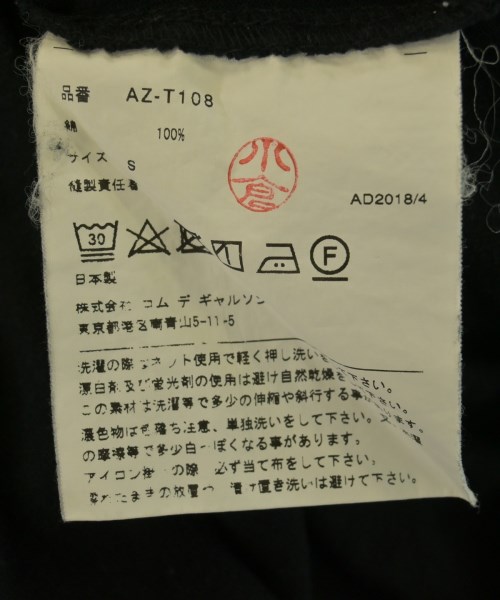 品番 AZ-T108
綿 100%
サイズ S
縫製責任者
小倉
AD2018/4
30
F
日本製
株式会社 コム デ ギャルソン
東京都港区南青山5-11-5
洗濯の際はネット使用で軽く押し洗いを
漂白剤及び蛍光剤の使用は避け自然乾燥を下さい。
この素材は洗濯等で多少の伸縮や斜行する事 ます。
濃色物は色落ち注意、単独洗いをして下さい。又
の摩擦等で多少白っぽくなる事があります。
アイロン掛けの際 必ず当て布をして下さい。
たままの放置や 漬け置き洗いは避けて下さい。